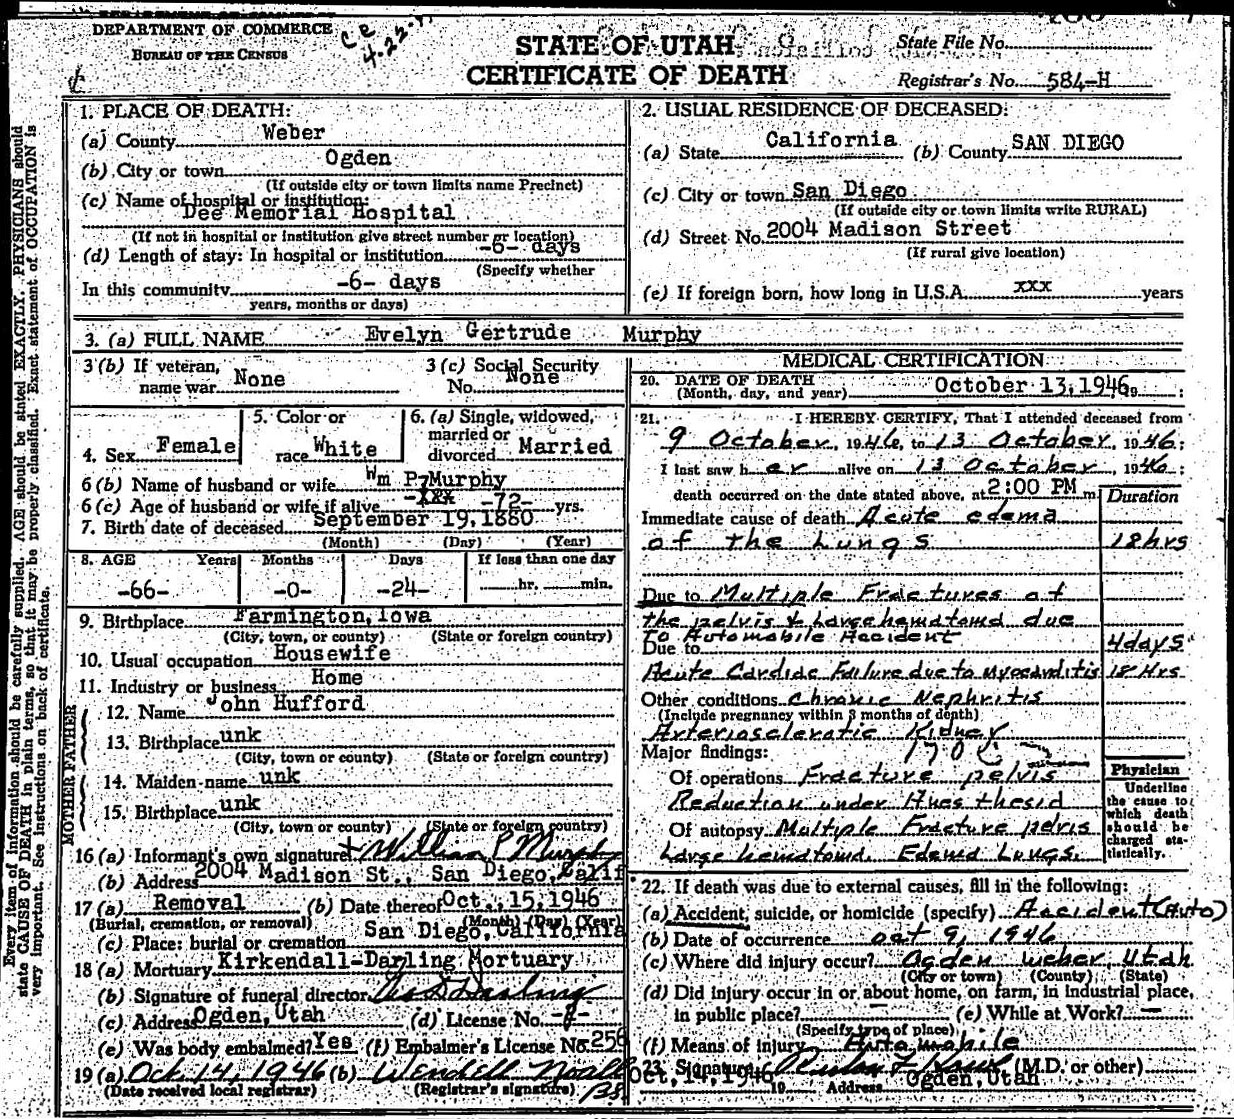 DEPARTMENT OF COMMERCE
BUREAU OF THE CENSUS
CR
4.22.
STATE OF UTAH
CERTIFICATE OF DEATH
State File No.
Registrar's No. 584-H
Every item of information should be carefully supplied. AGE should be stated EXACTLY. PHYSICIANS should
state CAUSE OF DEATH in plain terms, so that it may be properly classified. Exact statement of OCCUPATION is
very important. See instructions on back of certificate.
1. PLACE OF DEATH:
(a) County Weber
(b) City or town Ogden
(If outside city or town limits name Precinct)
(c) Name of hospital or institution:
Dee Memorial Hospital
(If not in hospital or institution give street number or location)
(d) Length of stay: In hospital or institution -6- days
(Specify whether
In this community -6- days
years, months or days)
2. USUAL RESIDENCE OF DECEASED:
(a) State California (b) County SAN DIEGO
(c) City or town San Diego
(If outside city or town limits write RURAL)
(d) Street No. 2004 Madison Street
(If rural give location)
(e) If foreign born, how long in U.S.A. xxx years
3. (a) FULL NAME Evelyn Gertrude Murphy
3 (b) If veteran, name war None
3 (c) Social Security No. None
4. Sex Female
5. Color or race White
6. (a) Single, widowed, married or divorced Married
6 (b) Name of husband or wife Wm P. Murphy
6 (c) Age of husband or wife if alive -72- yrs.
7. Birth date of deceased September 19, 1880
(Month) (Day) (Year)
8. AGE Years Months Days If less than one day
-66- -0- -24- hr. min.
9. Birthplace Farmington, Iowa
(City, town, or county) (State or foreign country)
10. Usual occupation Housewife
11. Industry or business Home
FATHER
12. Name John Hufford
13. Birthplace unk
(City, town or county) (State or foreign country)
MOTHER
14. Maiden name unk
15. Birthplace unk
(City, town or county) (State or foreign country)
16 (a) Informant's own signature x William P Murphy
(b) Address 2004 Madison St., San Diego, Calif
17 (a) Removal (b) Date thereof Oct., 15, 1946
(Burial, cremation, or removal) (Month) (Day) (Year)
(c) Place: burial or cremation San Diego, California
18 (a) Mortuary Kirkendall-Darling Mortuary
(b) Signature of funeral director Darling
(c) Address Ogden, Utah (d) License No.
(e) Was body embalmed? Yes (f) Embalmer's License No. 256
19 (a) Oct. 14, 1946 (b) Wendell Noall
(Date received local registrar) (Registrar's signature)
MEDICAL CERTIFICATION
20. DATE OF DEATH
(Month, day, and year) October 13, 1946 19 :
21. I HEREBY CERTIFY, That I attended deceased from
9 October, 1946, to 13 October, 1946;
I last saw her alive on 13 October, 1946;
death occurred on the date stated above, at 2:00 PM m.
Duration
Immediate cause of death Acute edema
of the Lungs 18 hrs
Due to Multiple Fractures of
the pelvis & Large hematoma due
To Automobile Accident
Due to 4 days
Acute Cardiac Failure due to myocarditis 18 Hrs
Other conditions Chronic Nephritis
(Include pregnancy within 3 months of death)
Arteriosclerotic Kidney
Major findings: 170C
Of operations Fracture pelvis
Reduction under Anesthesia
Of autopsy Multiple Fracture pelvis
Large hematoma. Edema Lungs.
Physician
Underline
the cause to
which death
should be
charged sta-
tistically.
22. If death was due to external causes, fill in the following:
(a) Accident, suicide, or homicide (specify) Accident (Auto)
(b) Date of occurrence Oct 9, 1946
(c) Where did injury occur? Ogden Weber Utah
(City or town) (County) (State)
(d) Did injury occur in or about home, on farm, in industrial place,
in public place? — (e) While at Work? —
(Specify type of place)
(f) Means of injury Automobile
23. Signature (M.D. or other)
Oct, 14, 1946 19 Address Ogden, Utah